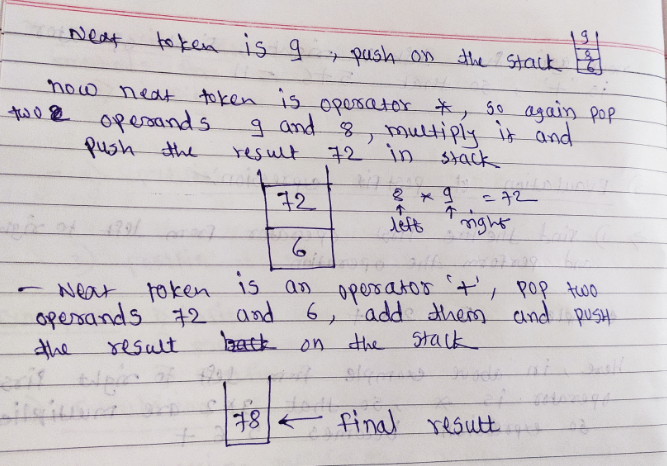 Next token is 9, push on the stack
9
8
6
now next token is operator *, so again pop
two operands 9 and 8, multiply it and
push the result 72 in stack
72
6
8 * 9 = 72
left right
- Next token is an operator '+', pop two
operands 72 and 6, add them and push
the result back on the stack
78 ← final result